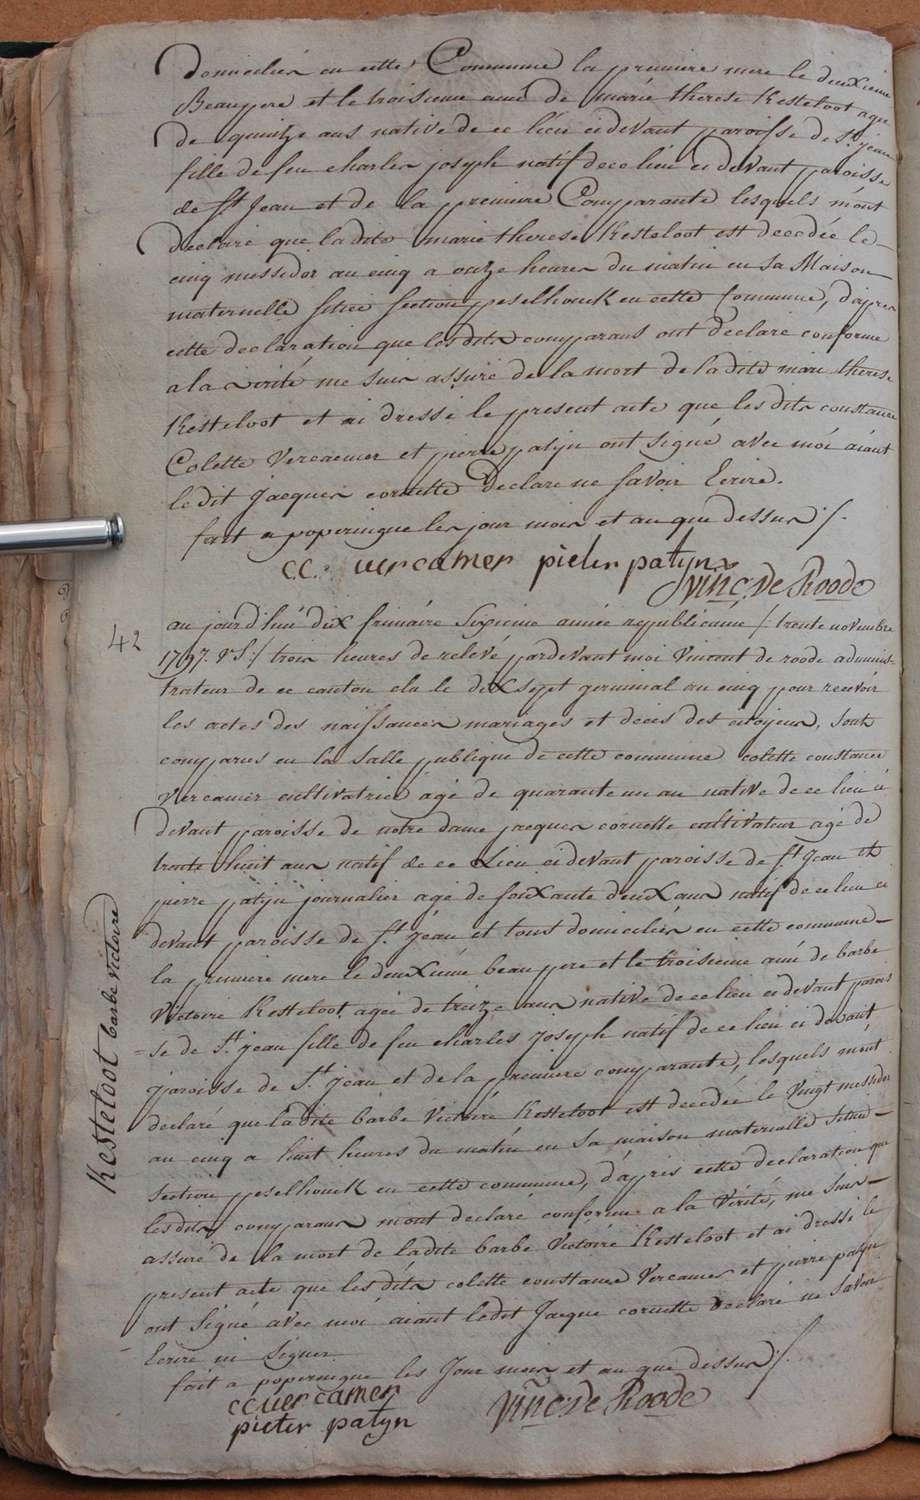 domicilies en cette Commune la premiere mere le deuxieme
Beaupere et le troisieme ami de marie therese Kesteloot agee
de quinze ans native de ce lieu ci devant paroisse de St jean
fille de feu charles joseph natif de ce lieu ci devant paroisse
de St Jean et de la premiere Comparante lesquels m'ont
declaré que ladite marie therese Kesteloot est decedée le
cinq messidor an cinq a onze heures du matin en sa Maison
maternelle sitiee section peselhouck en cette Commune, d'apres
cette declaration que lesdits comparans ont declaré conforme
a la virité, me suis assuré de la mort de ladite marie therese
Kesteloot et ai dressé le present acte que les dits constance
Colette Vercaemer et pierre patyn ont signé avec moi aiant
ledit Jacques cornette declare ne savoir Ecrire.
fait a poperingue les jour mois et an que dessus /.
c c: vercamer pieter patyn
vinc: De Roode
42
au jourd'hui dix frimaire Sixieme année republicaine /: trente novembre
1797. v S:/ trois heures de relevé pardevant moi Vincent de roode adminis-
trateur de ce canton elu le dix sept germinal an cinq pour recevoir
les actes des naissances mariages et decès des citoyens, sont
comparus en la salle publique de cette commune colette constance
Vercamer cultivatrice agé de quarante un an native de ce lieu ci
devant paroisse de notre dame jacques cornette cultivateur agé de
trente huit ans natif de ce Lieu ci devant paroisse de St Jean et
pierre patyn journalier agé de soixante deux ans natif de ce lieu ci
devant paroisse de St Jean et tous domiciliés en cette commune
la premiere mere le deuxieme beau pere et le troisieme ami de barbe
Victoire Kesteloot, agée de treize ans native de ce lieu ci devant parois
=se de St jean fille de feu charles Joseph natif de ce lieu ci devant
paroisse de St Jean et de la premiere comparante, lesquels m'ont
declaré que ladite barbe Victoire Kesteloot est decedée le Vingt messidor
an cinq a huit heures du matin en sa maison maternelle sitiee
section peselhouck en cette commune, d'apris cette declaration que
lesdits comparans m'ont declaré conforme a la Verité, me suis
assuré de la mort de ladite barbe Victoire Kesteloot et ai dressé le
present acte que les dits colette constance Vercamer et pierre patyn
ont Signé avec moi aiant ledit Jacque cornette declaré ne Savoir
Ecrire ni Signer.
fait a poperingue les Jour mois et an que dessus /.
cc vercamer
pieter patyn
vinc: De Roode
Kesteloot barbe victoire